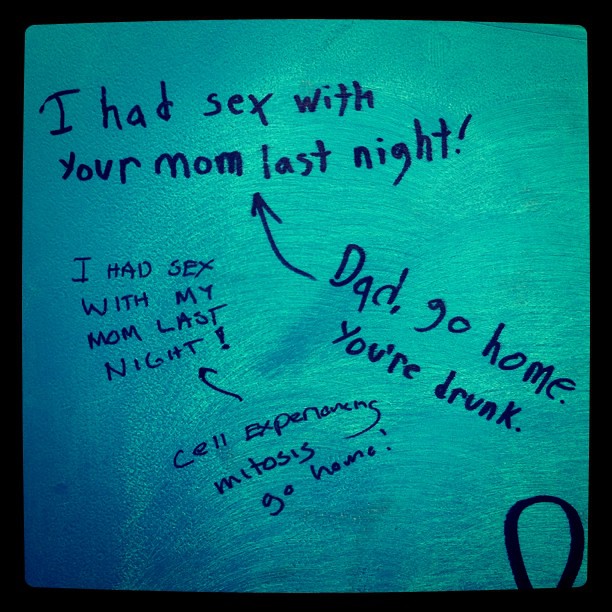 I had sex with
your mom last night!
Dad, go home.
You're drunk.
I HAD SEX
WITH MY
MOM LAST
NIGHT!
cell experiancing
mitosis
go home!